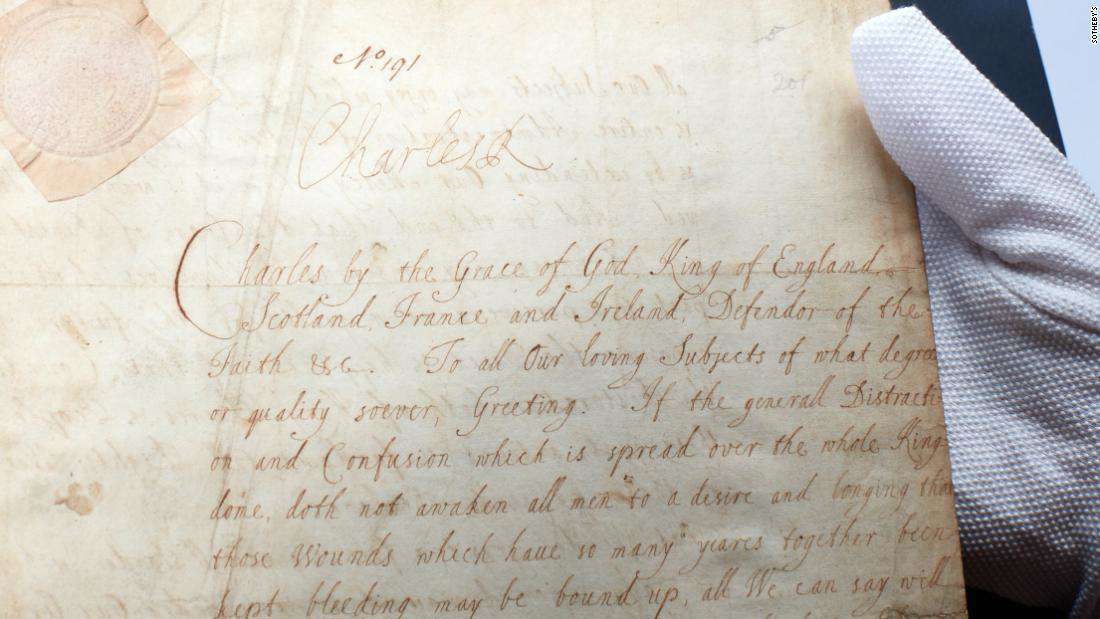 Nº. 191
Charles R
Charles by the Grace of God, King of England,
Scotland, France and Ireland, Defendor of the
Faith &c. To all Our loving Subjects of what degree
or quality soever, Greeting. If the generall Distracti
on and Confusion which is spread over the whole King
dome, doth not awaken all men to a desire and longing that
those Wounds which have so many yeares together been
kept bleeding may be bound up, all We can say will
SOTHEBY'S